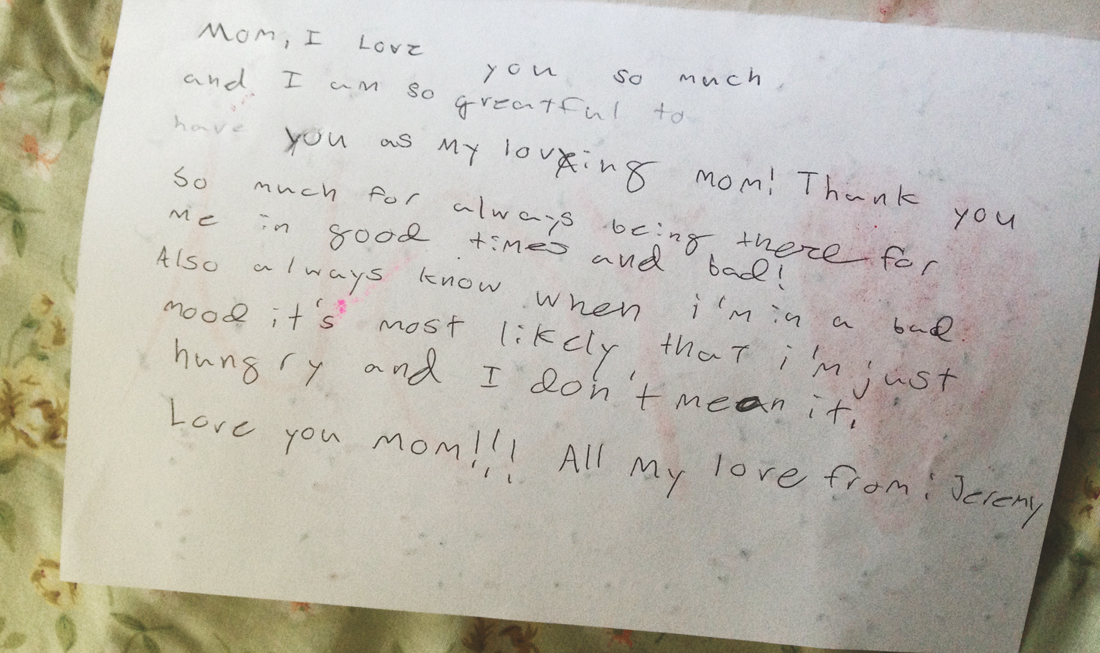 Mom, I Love you so much
and I am so greatful to
have you as my loving mom! Thank you
so much for always being there for
me in good times and bad!
Also always know when i'm in a bad
mood it's most likely that i'm just
hungry and I don't mean it.
Love you mom!!! All my love from: Jeremy